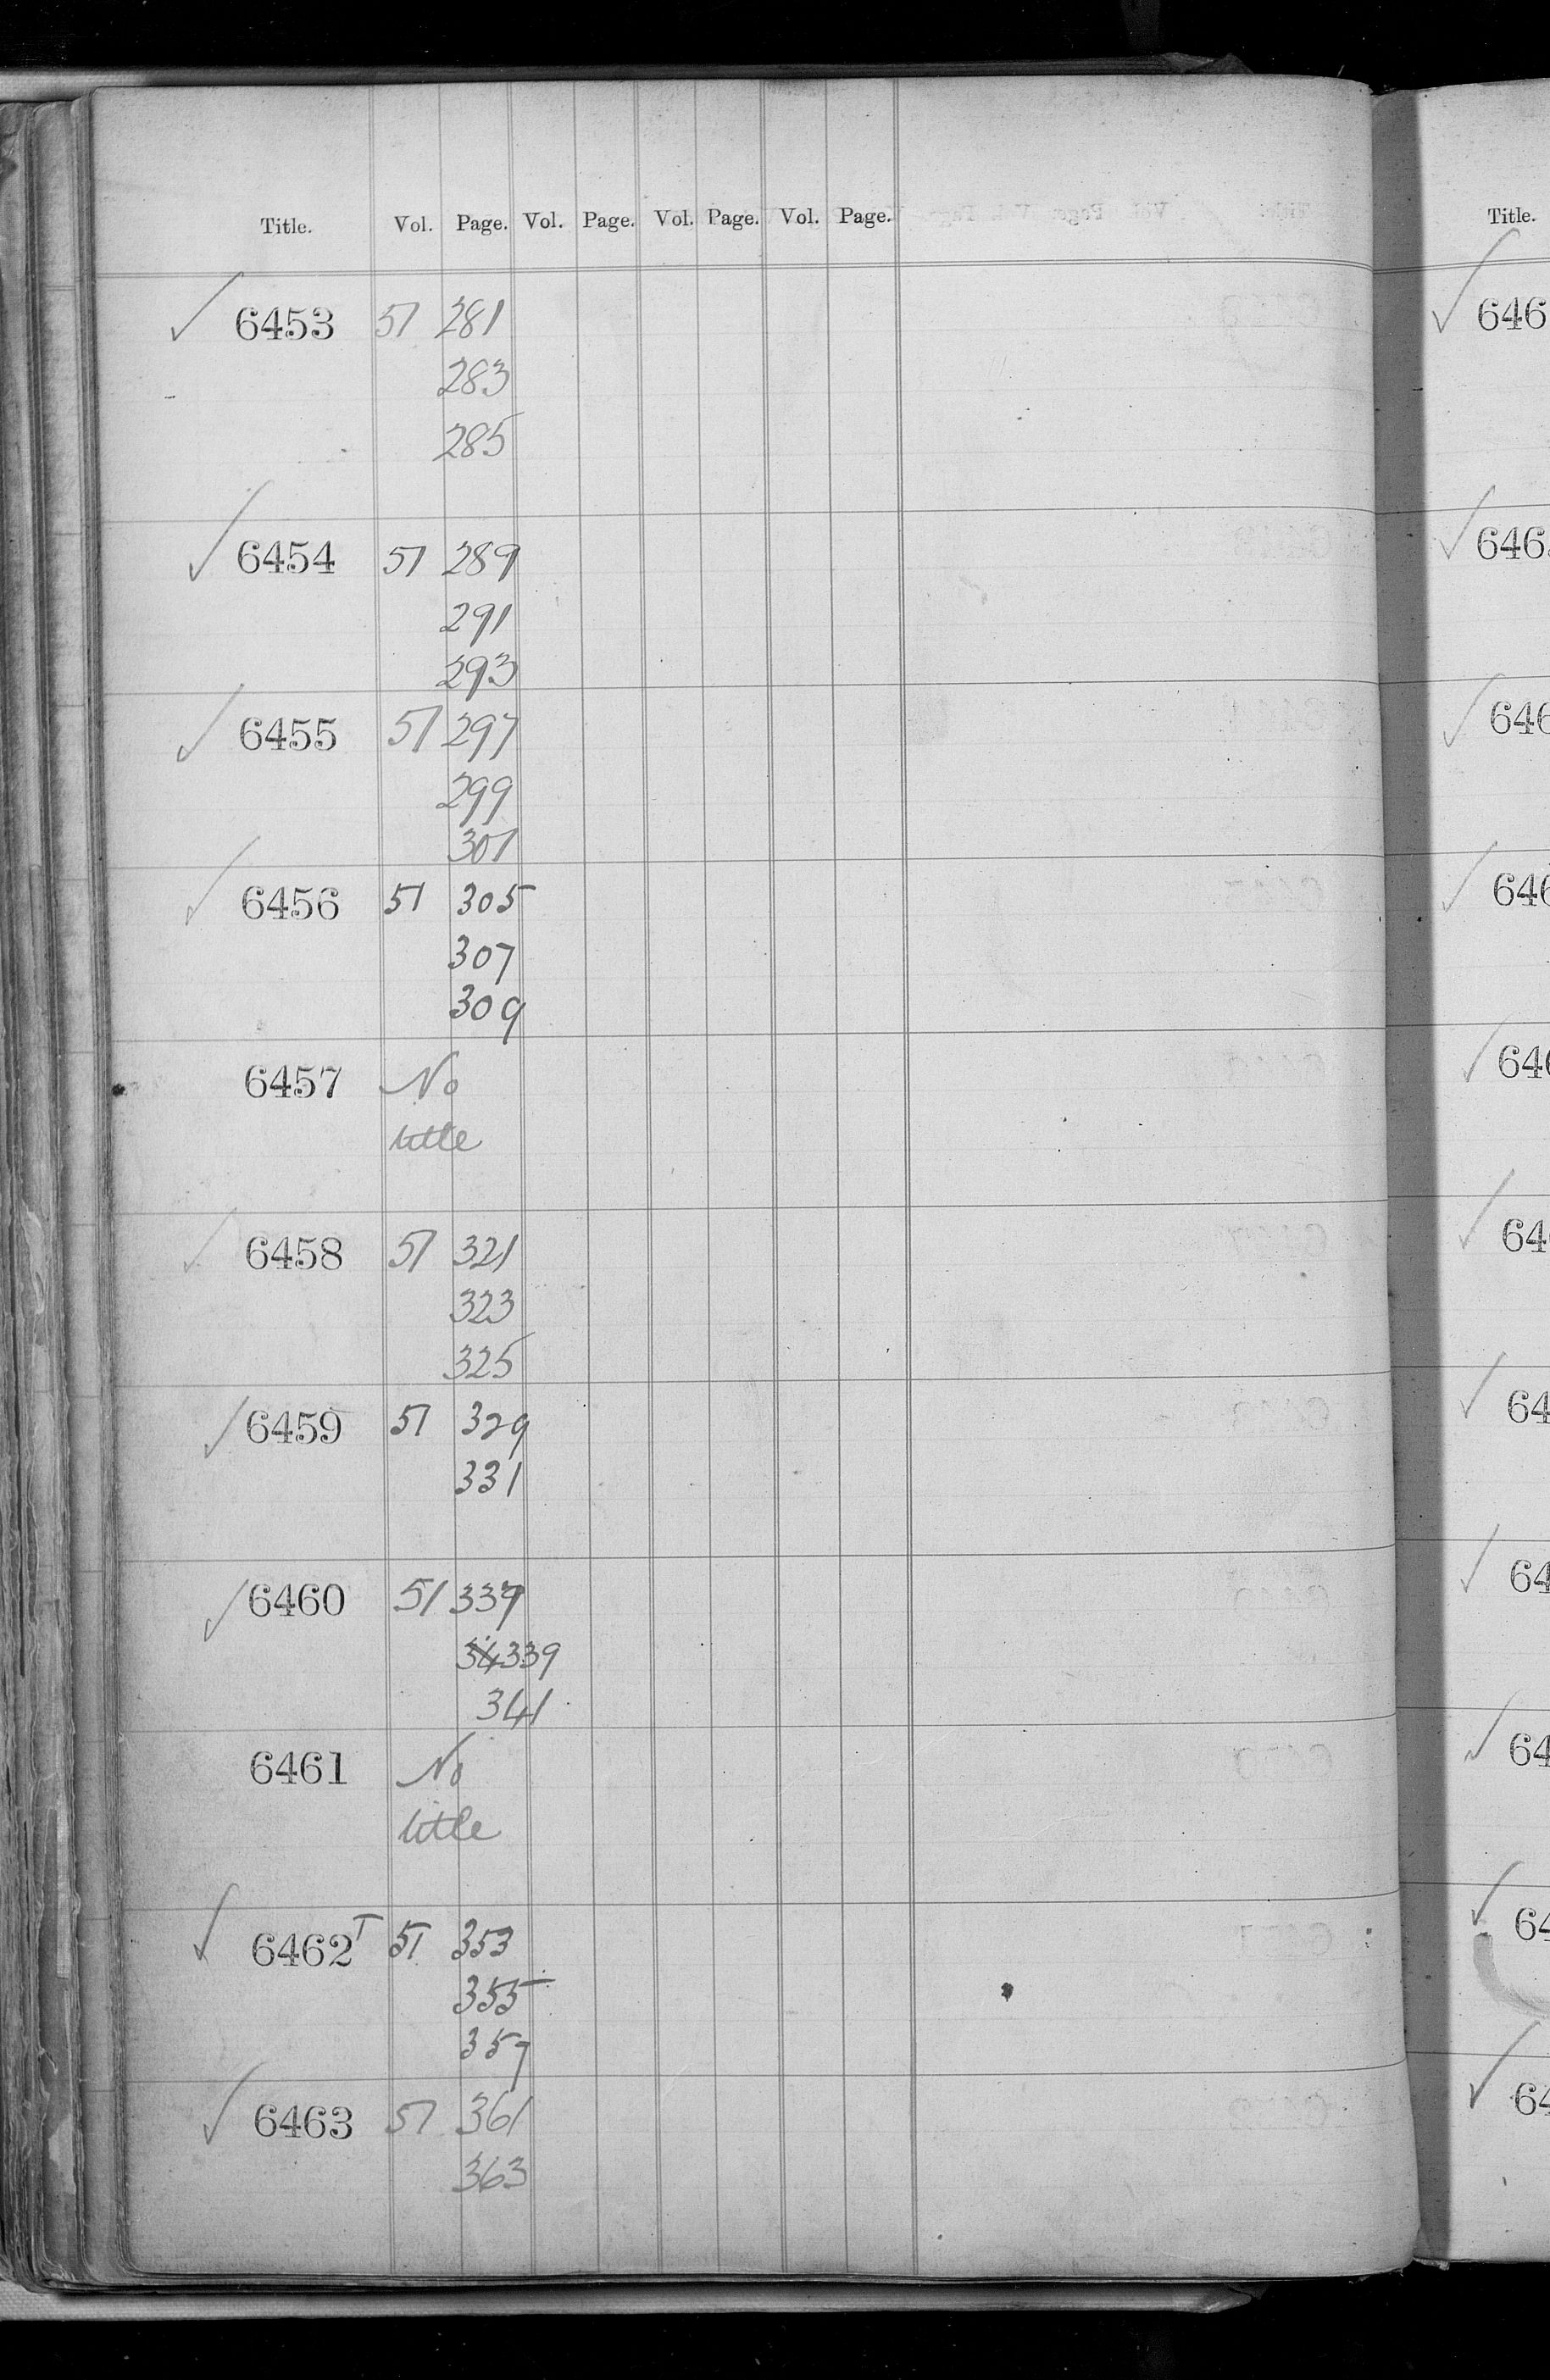 Title. Vol. Page. Vol. Page. Vol. Page. Vol. Page.
✓ 6453 51 281
283
285
✓ 6454 51 289
291
293
✓ 6455 51 297
299
301
✓ 6456 51 305
307
309
6457 No
title
✓ 6458 51 321
323
325
✓ 6459 51 329
331
✓ 6460 51 337
34 339
341
6461 No
title
✓ 6462 T 51 353
355
357
✓ 6463 51 361
363
Title.
✓ 646
✓ 646
✓ 646
✓ 646
✓ 646
✓ 64
✓ 64
✓ 64
✓ 64
✓ 64
✓ 64